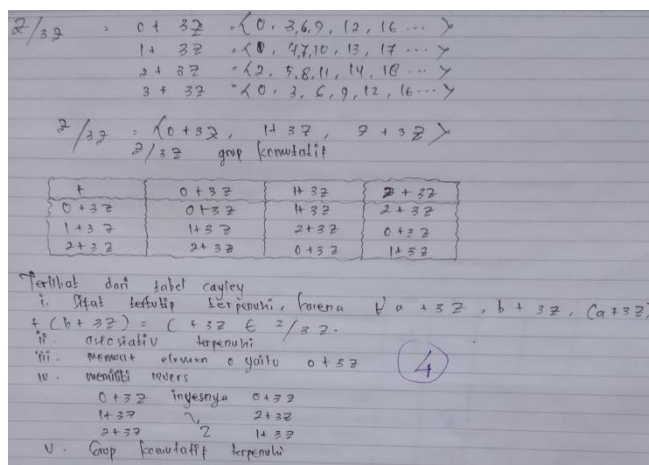 Z/3Z = 0 + 3Z = {0, 3,6,9, 12, 16 ... }
1 + 3Z = {1, 4,7,10, 13, 17 ... }
2 + 3Z = {2, 5,8,11, 14, 18 ... }
3 + 3Z = {0, 3, 6, 9, 12, 16 ... }
Z/3Z = {0+3Z, 1+3Z, 2+3Z}
Z/3Z grup komutatif
+ 0+3Z 1+3Z 2+3Z
0+3Z 0+3Z 1+3Z 2+3Z
1+3Z 1+3Z 2+3Z 0+3Z
2+3Z 2+3Z 0+3Z 1+3Z
Terlihat dari tabel cayley
i. Sifat tertutip terpenuhi, karena ∀ a + 3Z, b + 3Z, (a+3Z)
+ (b + 3Z) = C + 3Z ∈ Z/3Z.
ii. asosiativ terpenuhi
iii. memuat elemen 0 yaitu 0+3Z
iv. memiliki invers
0+3Z inyesnya 0+3Z
1+3Z 2+3Z
2+3Z 1+3Z
v. Grup komutatif terpenuhi
4